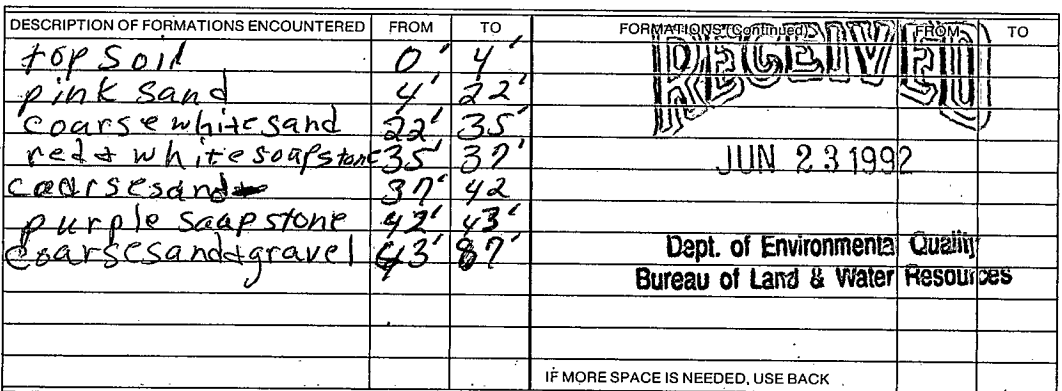 DESCRIPTION OF FORMATIONS ENCOUNTERED FROM TO FORMATIONS (Continued) FROM TO
top soil 0' 4'
pink sand 4' 22'
coarse white sand 22' 35'
red & white soapstone 35' 37'
coarse sand 37' 42
purple soapstone 42' 43'
coarse sand & gravel 43' 87'
RECEIVED
JUN 23 1992
Dept. of Environmental Quality
Bureau of Land & Water Resources
IF MORE SPACE IS NEEDED, USE BACK